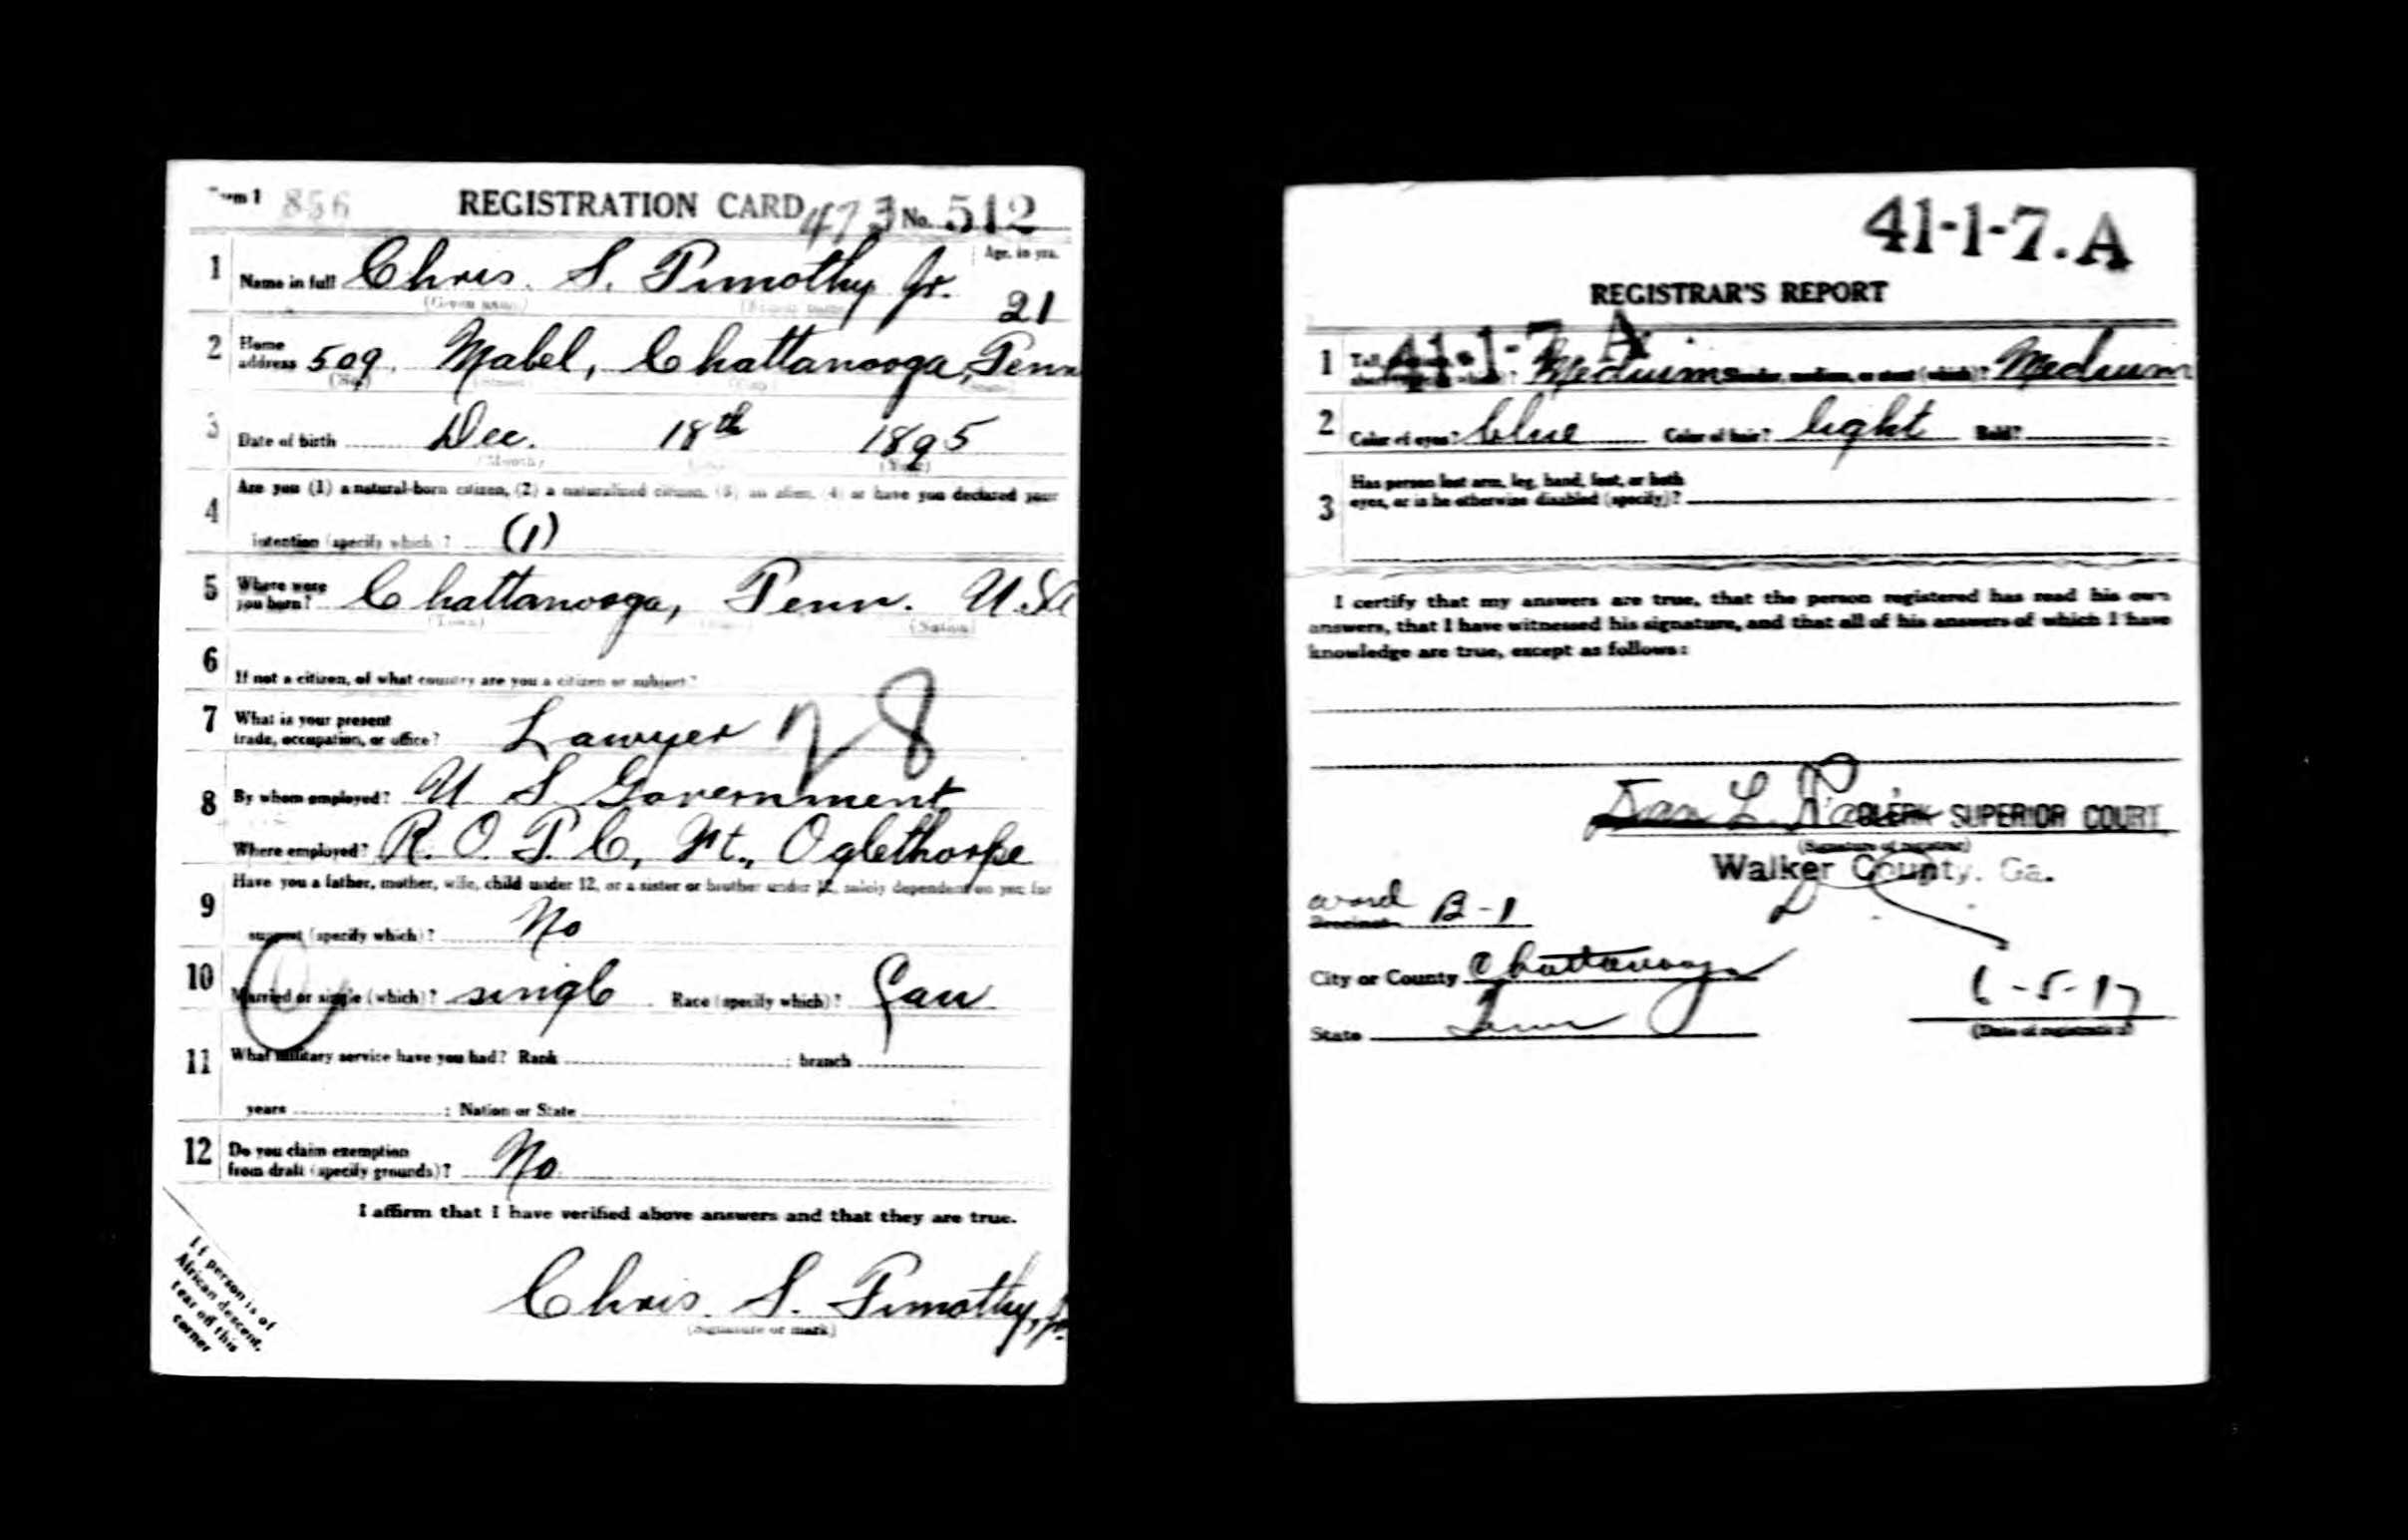 Form 1 856 REGISTRATION CARD 473 No. 512
1 Name in full Chris. S. Timothy Jr. Age, in yrs. 21
(Given name) (Family name)
2 Home address 509 Mabel, Chattanooga, Tenn
(No.) (Street) (City) (State)
3 Date of birth Dec. 18th 1895
(Month) (Day) (Year)
4 Are you (1) a natural-born citizen, (2) a naturalized citizen, (3) an alien, (4) or have you declared your
intention (specify which)? (1)
5 Where were you born? Chattanooga, Tenn. U.S.A
(Town) (State) (Nation)
6 If not a citizen, of what country are you a citizen or subject?
7 What is your present trade, occupation, or office? Lawyer 28
8 By whom employed? U. S. Government
Where employed? R. O. T. C, Ft., Oglethorpe
9 Have you a father, mother, wife, child under 12, or a sister or brother under 12, solely dependent on you for
support (specify which)? No
10 Married or single (which)? single Race (specify which)? Cau
11 What military service have you had? Rank ; branch
years ; Nation or State
12 Do you claim exemption from draft (specify grounds)? No
I affirm that I have verified above answers and that they are true.
Chris. S. Timothy, Jr.
(Signature or mark)
If person is of
African descent,
tear off this
corner
41-1-7. A
REGISTRAR'S REPORT
41-1-7 A
1 Tall, Medium slender, medium, or stout (which)? Medium
2 Color of eyes? blue Color of hair? light Bald?
3 Has person lost arm, leg, hand, foot, or both
eyes, or is he otherwise disabled (specify)?
I certify that my answers are true, that the person registered has read his own
answers, that I have witnessed his signature, and that all of his answers of which I have
knowledge are true, except as follows:
L. CLERK SUPERIOR COURT
(Signature of registrar)
Walker County, Ga.
ward
Precinct B-1
City or County Chattanooga
State Tenn 6-5-17
(Date of registration)